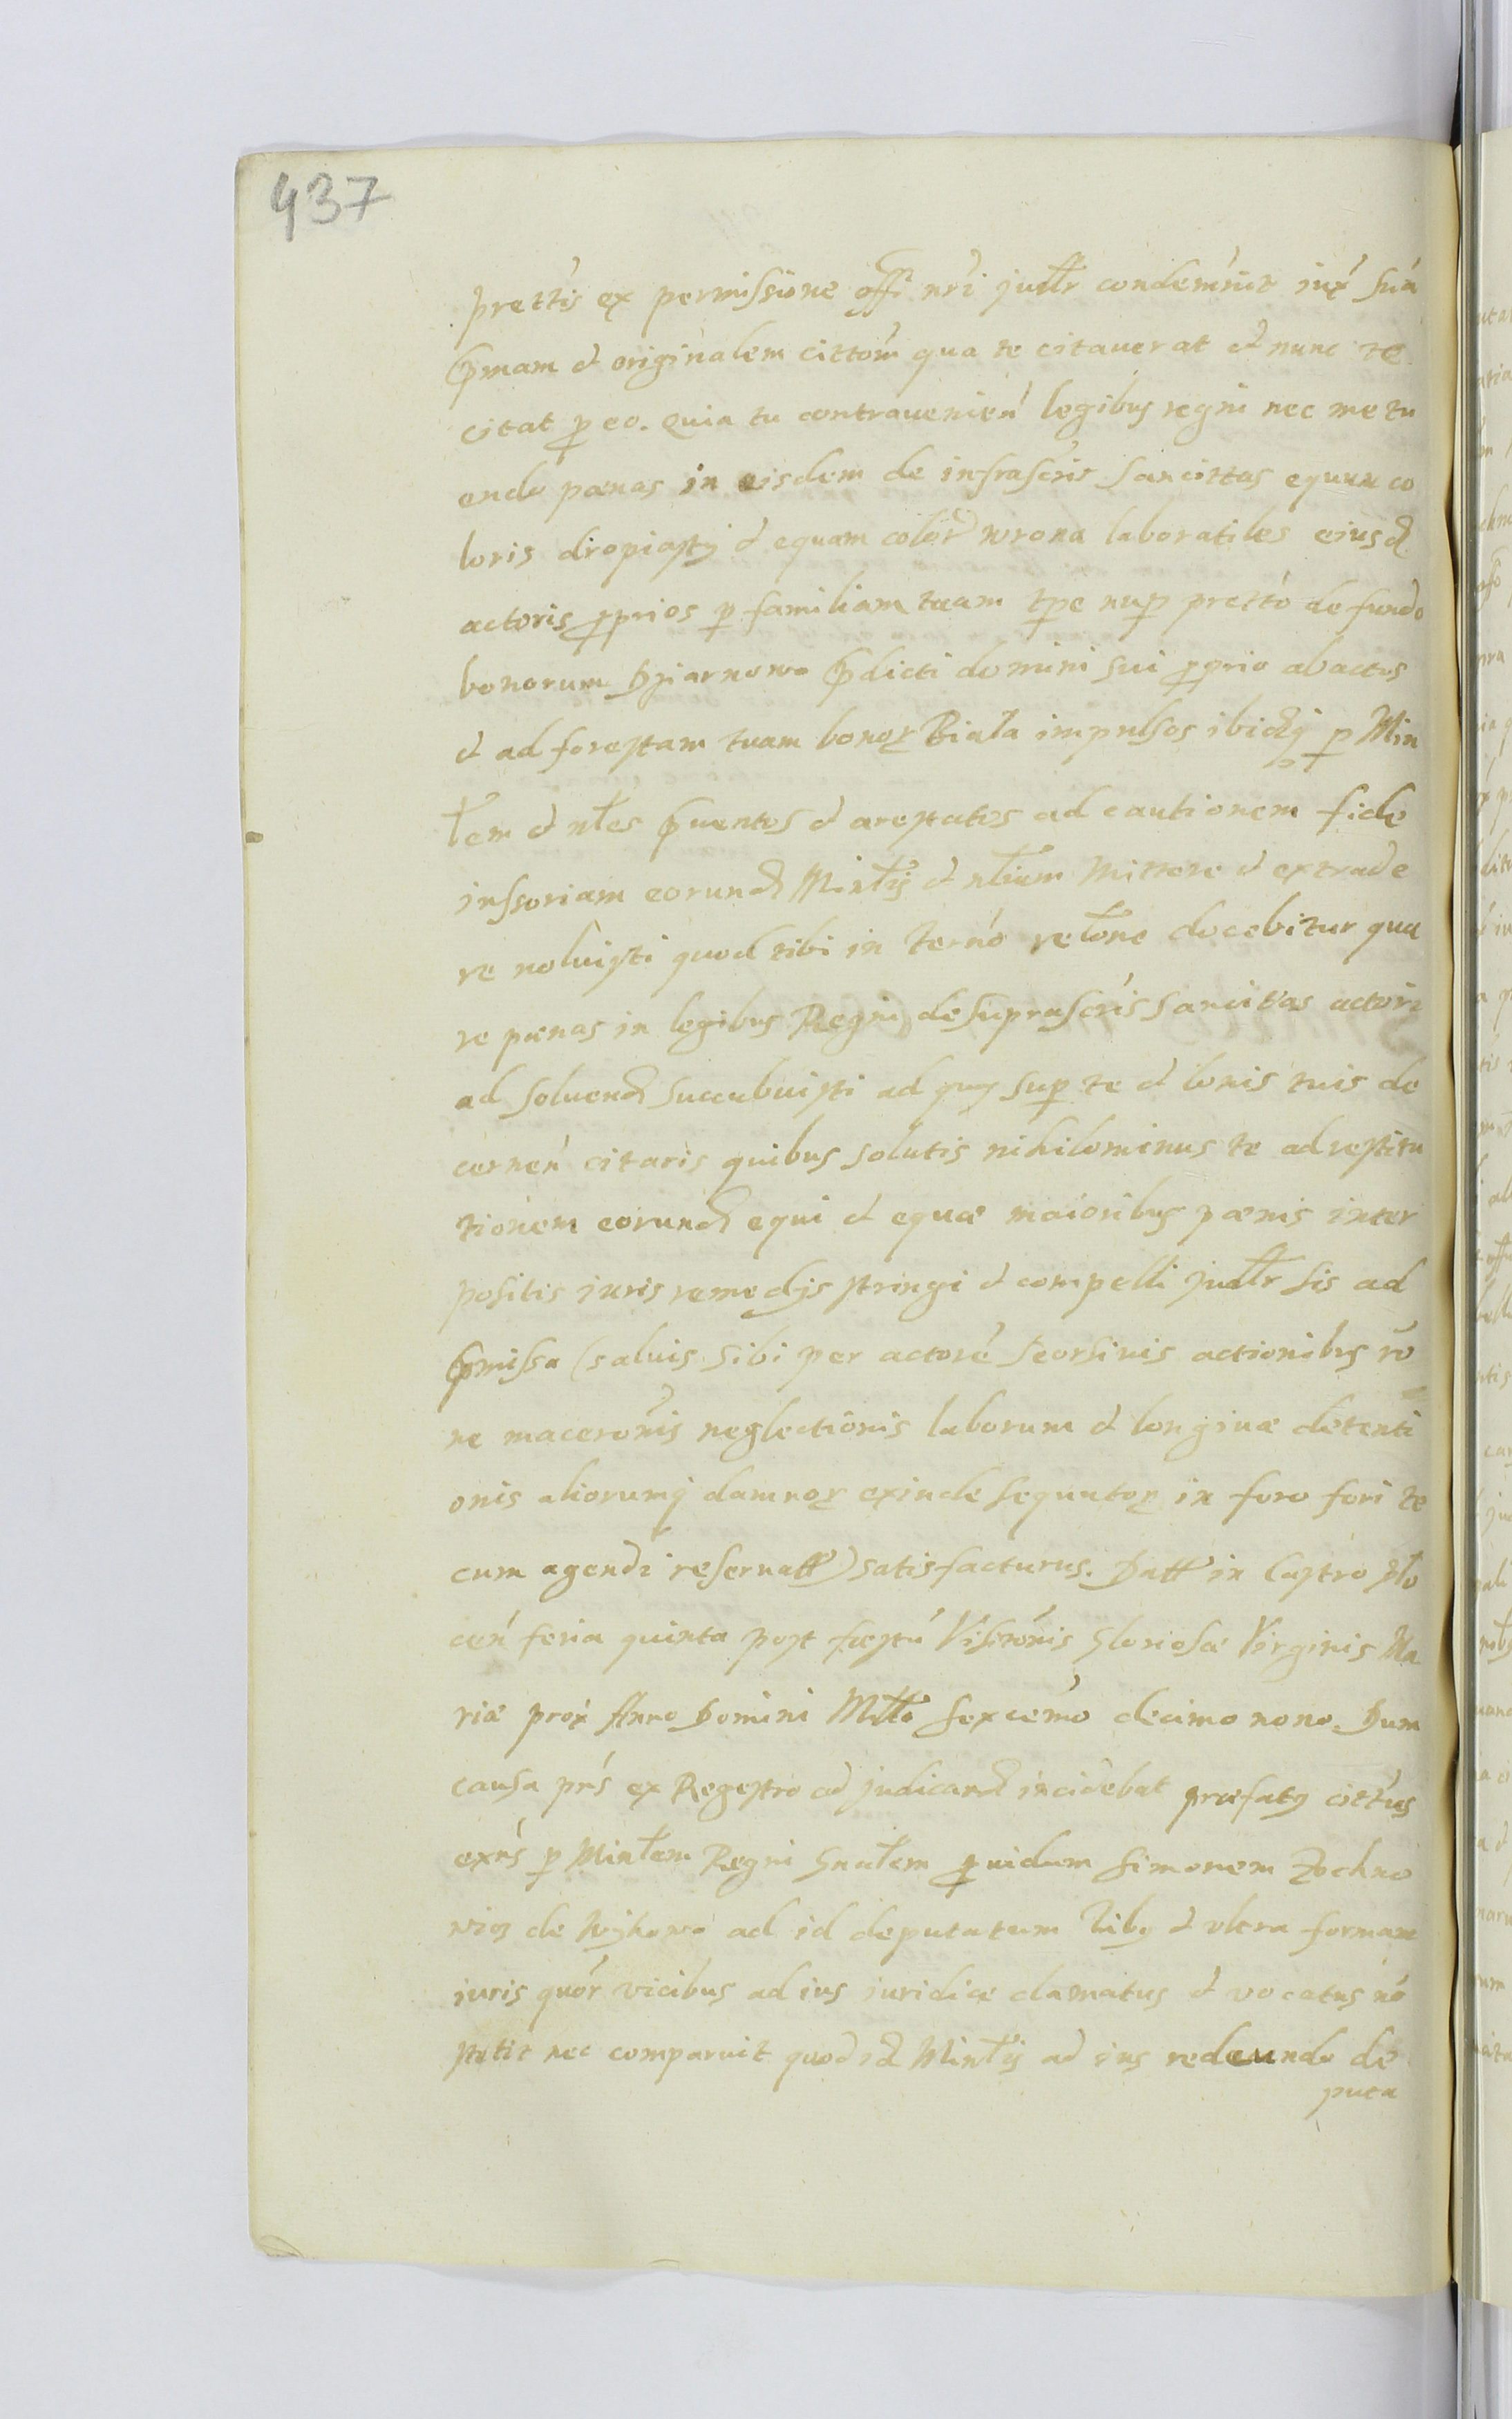 437
prettis ex permissione offi nri judlr condemnit iux sua
pmam & originalem cittom qua te citauerat & nunc te
citat p eo. Quia tu contrauenien legibus regni nec metu
endo pœnas in eisdem de infrascris sancittas equum co
loris dropiasty & equam color wrona laboratiles eiusd
actoris pprios p familiam tuam tpe nup pretto de fundo
bonorum Dziarnowo pdicti domini sui pprio abactos
& ad forestam tuam bonor Biała impulsos ibidq p Min
lem & nles puentos & arestatos ad cautionem fide
iussoriam eorund Minlis & nlium Mittere & extrade
re noluisti quod tibi in terno relone docebitur qua
re pœnas in legibus Regni desuprascris sancitas actori
ad soluend succubuisti ad quas sup te & bonis tuis de
cernen citaris quibus solutis nihilominus te ad restitu
tionem eorund equi & equæ maioribus pœnis inter
positis iuris remedijs stringi & compelli judlr sis ad
pmissa (saluis sibi per actore seorsiuis actionibus ro
ne maceronis neglectionis laborum & longinæ detenti
onis aliorumq damnor exinde sequutor in foro fori te
cum agendi reseruatt) satisfacturus. Datt in Castro Plo
cen feria quinta post fæstu Visitonis Gloriosæ Virginis Ma
riæ prox Anno Domini Millo sexcemo decimo nono. Dum
causa pns ex Regestro ad judicand incidebat præfatus cittus
exns p Minlem Regni Gnalem puidum Simonem Zochno
wicz de Wykowo ad id deputatum Tribus & vltra formam
iuris quor vicibus ad ius iuridice clamatus & vocatus no
stetit nec comparuit quod id Minlis ad ius redeundo de
puta